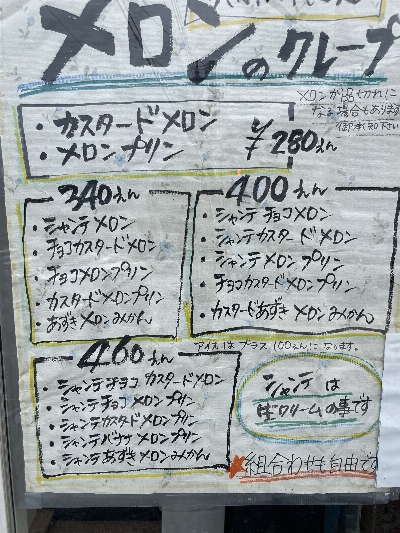 メロンのクレープ
メロンが品切れに
なる場合もあります
御承知下さい
・カスタードメロン
・メロンプリン
¥280えん
340えん
・シャンテメロン
・チョコカスタードメロン
・チョコメロンプリン
・カスタードメロンプリン
・あずきメロンみかん
400えん
・シャンテチョコメロン
・シャンテカスタードメロン
・シャンテメロンプリン
・チョコカスタードメロンプリン
・カスタードあずきメロンみかん
アイスはプラス100えんになります。
460えん
・シャンテチョコカスタードメロン
・シャンテチョコメロンプリン
・シャンテカスタードメロンプリン
・シャンテバナナメロンプリン
・シャンテあずきメロンみかん
シャンテは
生クリームの事です
※組合わせも自由です